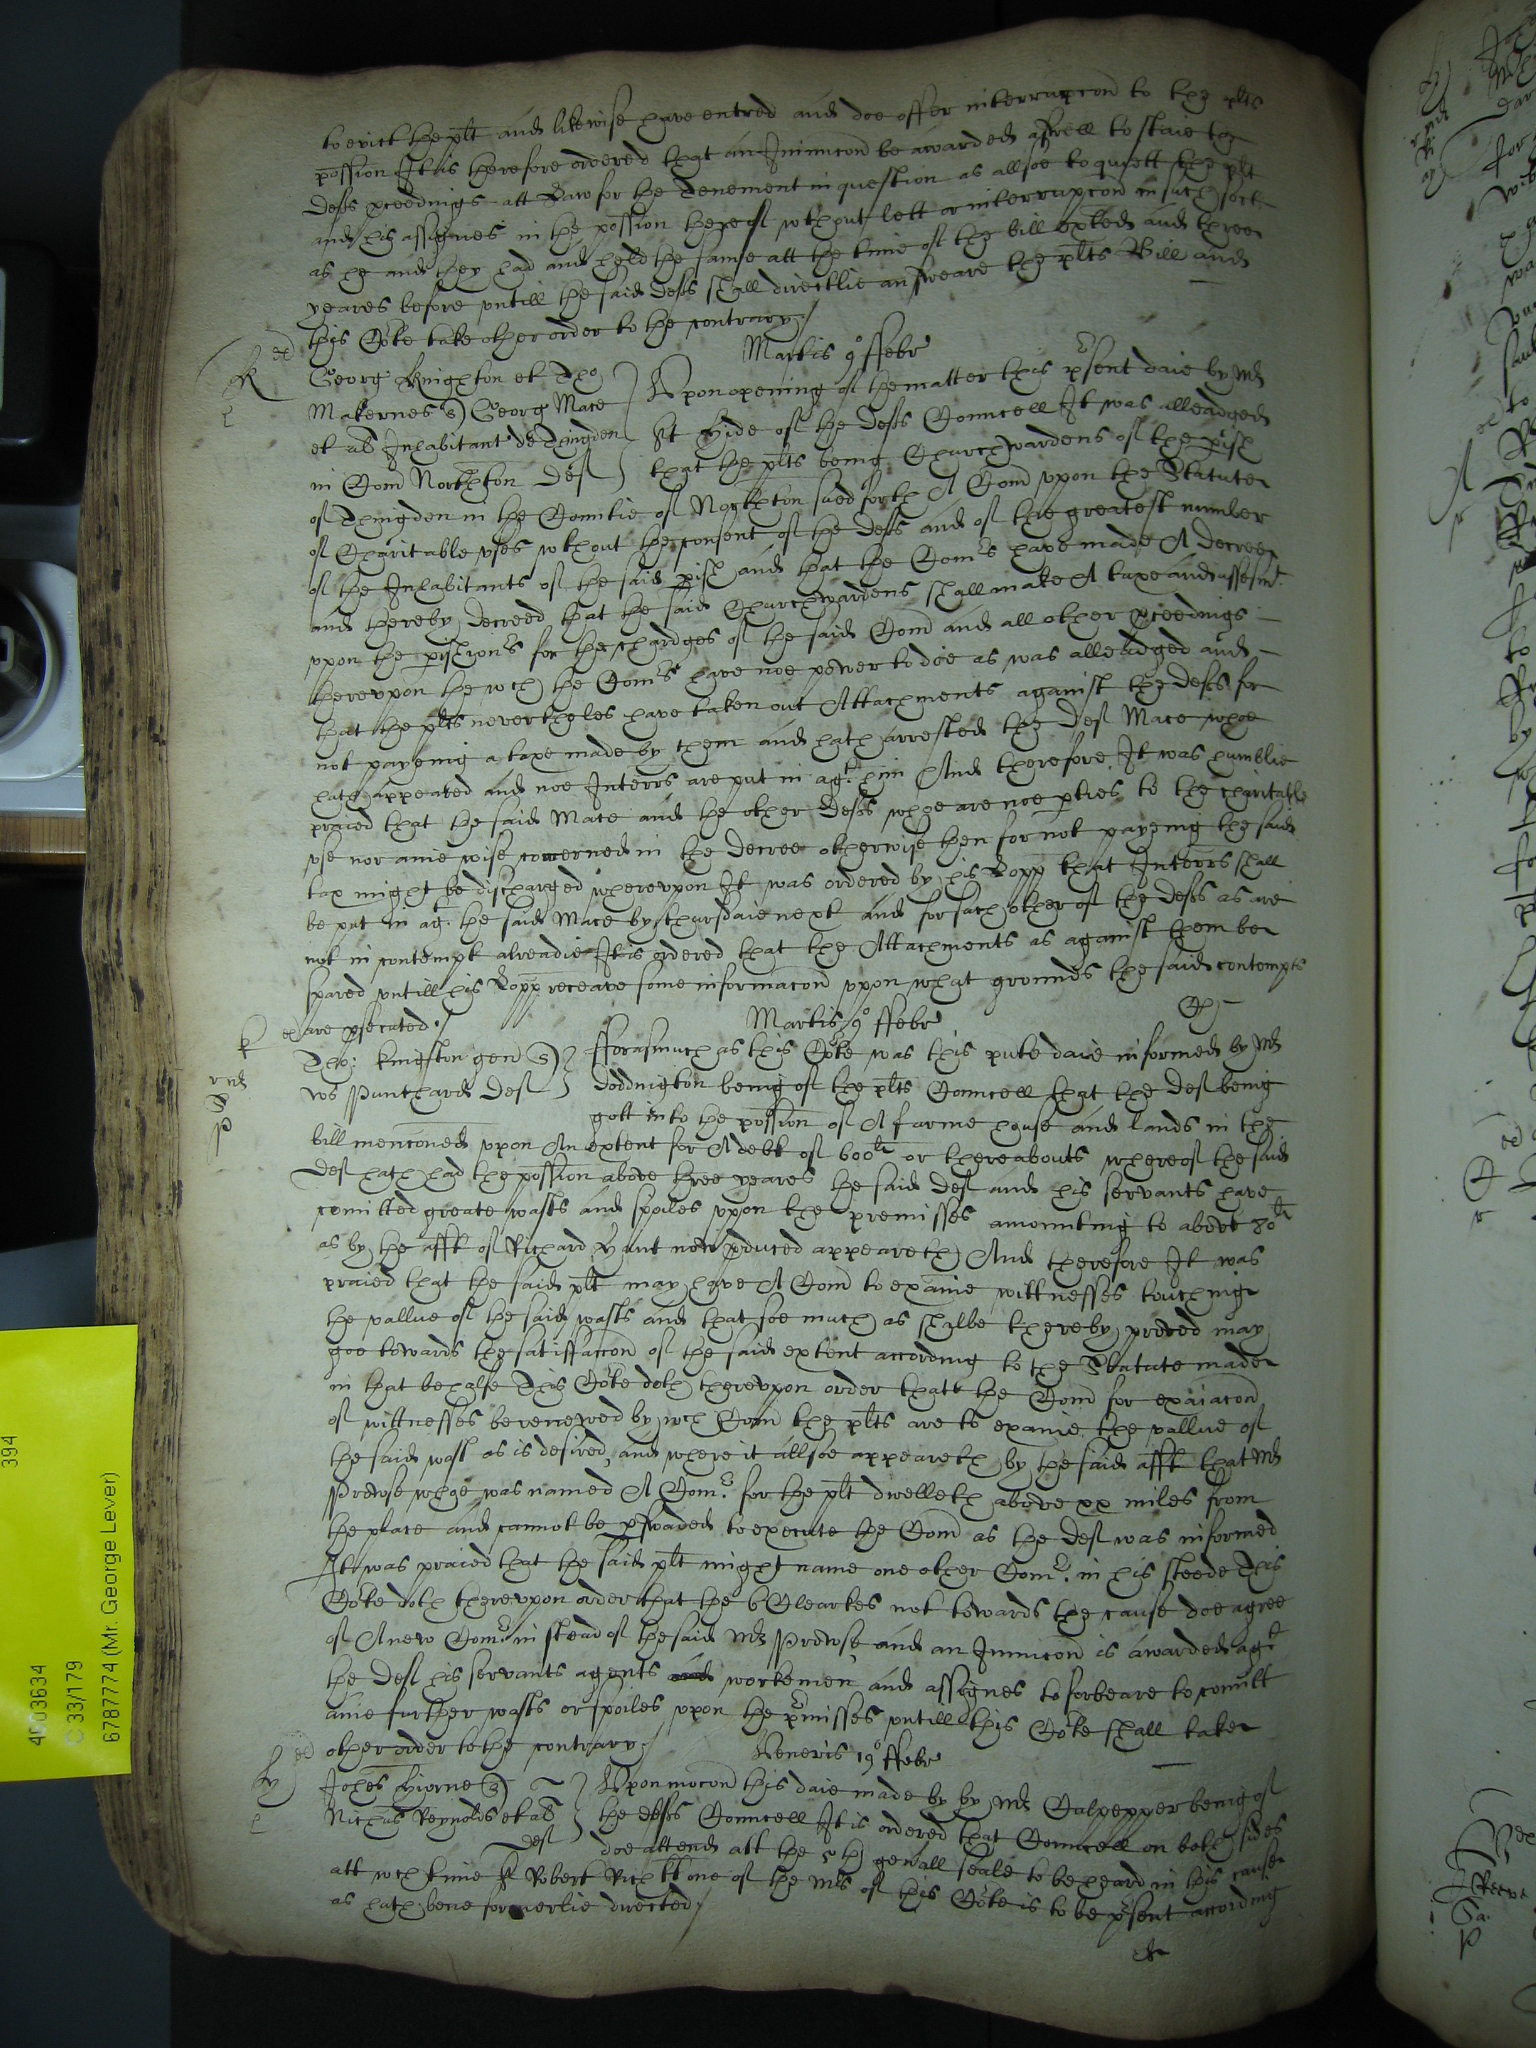 to evict the plt and likewise have entred and doe offer interrupcon to the plts
possion It is therefore ordered that an Iniuncon be awarded aswell to staie the
defts pceedings att Law for the Tenement in question as allsoe to quiett the plt
and his assignes in the possion thereof wthout lett or interrupcon in such sort
as he and they had and held the same att the time of the bill exted and three
yeares before untill the said defts shall directlie answeare the plts Bill and
this Co:te take other order to the contrary /
Martis 9° ffebr
Georg Knighton et Tho
Makernes s) Georg Mace
et al Inhabitant de Thingden
in Com Northton deft
Upon opening of the matter this psent daie by Mr
St Hide of the defts Councell It was alleadged
that the plts being Churchwardens of the pish
of Thingden in the Comitie of Northton sued forth A Com upon the Statute
of Charitable uses wthout the consent of the defts and of the greatest number
of the Inhabitants of the said pish and that the Com:rs have made A decree
and thereby decreed that the said Churchwardens shall make A taxe and assesmt
upon the pishion:rs for the chardges of the said Com and all other pceedings
thereupon the wch the Com:rs have noe power to doe as was alleadged and
that the plts nevertheles have taken out Attachments against the defts for
not payeing a taxe made by them and hath arrested the deft Mace whoe
hath appeared and noe Interrs are put in agt him And therefore It was humblie
praied that the said Mace and the other defts whoe are noe pties to the charitable
use nor anie wise concerned in the decree otherwise then for not payeing the said
tax might be discharged whereupon It was ordered by his Lopp that Interrs shall
be put in agt the said Mace by thursdaie next and for such other of the defts as are
not in contempt alreadie It is ordered that the Attachments as against them bee
spared untill his Lopp receave some informacon upon what grounds the said contempts
are psecuted /
Martis 9° ffebr
Tho: Kingston gen s)
Ws Punchard deft
fforasmuch as this Co:te was this pnte daie informed by Mr
Doddington being of the plts Councell that the deft being
gott into the possion of A farme house and lands in the
bill menconed upon An extent for A debt of 600li or thereabouts whereof the said
deft hath had the possion above three yeares the said deft and his servants have
comitted greate wasts and spoiles upon the premisses amounting to above 80li
as by the afft of Richard Hunt now pduced appeareth And therefore It was
praied that the said plt may have A Com to examie wittnesses touching
the vallue of the said wasts and that soe much as shalbe thereby proved may
goe towards the satisfaccon of the said extent according to the Statute made
in that behalfe This Co:te doth thereupon order that the Com for exaiacon
of wittnesses be renewed by wch Com the plts are to examie the vallue of
the said wast as is desired, and where it allsoe appeareth by the said afft that Mr
Prowse whoe was named A Com:r for the plt dwelleth above xx miles from
the place and cannot be pswaded to execute the Com as the deft was informed
It was praied that the said plt might name one other Com:r in his steede This
Co:te doth thereupon order that the 6 Clearkes not towards the cause doe agree
of A new Com:r in stead of the said Mr Prowse and an Iniuncon is awarded agt
the deft his servants agents workemen and assignes to forbeare to comitt
anie further wasts or spoiles upon the pmisses untill this Co:te shall take
other order to the contrary /
Veneris 19° ffebr
Johes Hiorne s)
Nichus Reynolds et al
deft
Upon mocon this daie made by by Mr Culpepper being of
the defts Councell It is ordered that Councell on both sides
doe attend att the 5th genall seale to be heard in this cause
att wch time Sr Robert Rich kt one of the Mrs of this Co:te is to be psent according
as hath bene formerlie directed /
4003634
C 33/179
6787774 (Mr. George Lever)
394